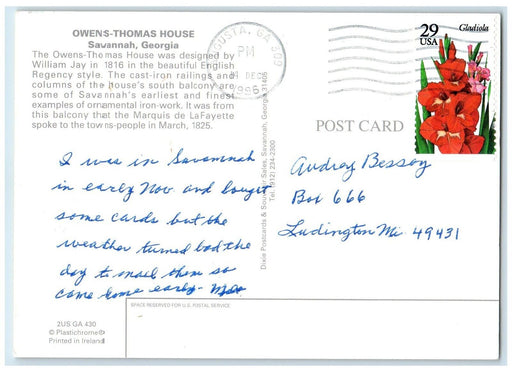 OWENS-THOMAS HOUSE
Savannah, Georgia
The Owens-Thomas House was designed by
William Jay in 1816 in the beautiful English
Regency style. The cast-iron railings and
columns of the house's south balcony are
some of Savannah's earliest and finest
examples of ornamental iron-work. It was from
this balcony that the Marquis de LaFayette
spoke to the towns-people in March, 1825.
I was in Savannah
in early Nov and bought
some cards but the
weather turned bad the
day to mail them so
came home early-
2US GA 430
© Plastichrome®
Printed in Ireland
Dixie Postcards & Souvenir Sales, Savannah, Georgia 31405
Tel. (912) 234-2300
AUGUSTA, GA 309
PM
DEC
29
USA
Gladiola
POST CARD
Audrey Bessoy
Box 666
Ludington Mi 49431
SPACE RESERVED FOR U.S. POSTAL SERVICE